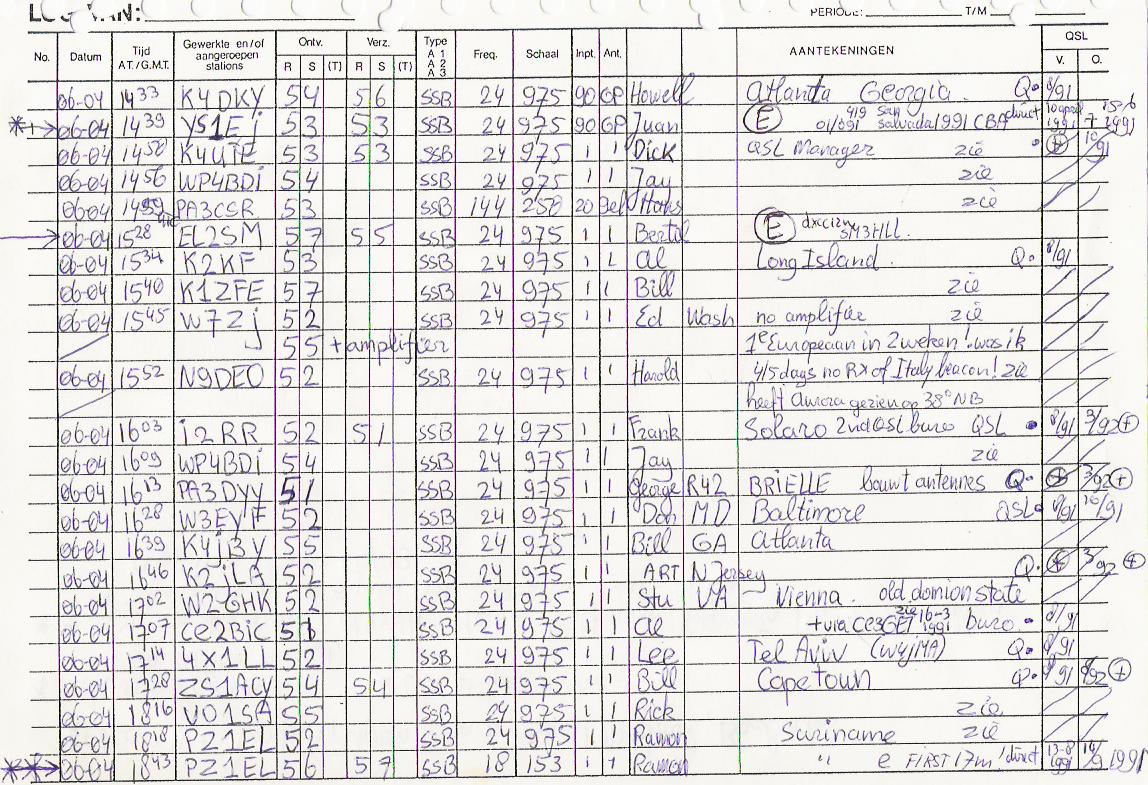 LOG VAN: PERIODE: T/M
No. Datum Tijd A.T./G.M.T. Gewerkte en/of aangeroepen stations Ontv. R S (T) Verz. R S (T) Type A 1 A 2 A 3 Freq. Schaal Inpt. Ant. AANTEKENINGEN QSL V. O.
06-04 1433 K4DKY 54 56 SSB 24 975 90 GP Howell Atlanta Georgia Q• 8/91
06-04 1439 YS1Ej 53 53 SSB 24 975 90 GP Juan E 419 San Salvada 1991 CBA direct 10 april 1991 + 1991
06-04 1450 K4UTE 53 53 SSB 24 975 1 1 Dick QSL Manager zie • + 10/91
06-04 1456 WP4BDi 54 SSB 24 975 1 1 Jay zie
06-04 1459 PA3CSR 53 SSB 144 250 20 Bel Hans zie
06-04 1528 EL2SM 57 55 SSB 24 975 1 1 Bertil E SM3HLL
06-04 1534 K2KF 53 SSB 24 975 1 1 Al Long Island Q• 8/91
06-04 1540 K1ZFE 57 SSB 24 975 1 1 Bill zie
06-04 1545 W7Zj 52 SSB 24 975 1 1 Ed Wash no amplifier zie
55 + amplifier 1e Europeaan in 2 weken! was ik
06-04 1552 N9DEO 52 SSB 24 975 1 1 Harold 4/5 days no RX of Italy beacon! zie
heeft Aurora gezien op 38° NB
06-04 1603 i2RR 52 51 SSB 24 975 1 1 Frank Solaro 2nd QSL buro QSL • 8/91 3/92 +
06-04 1609 WP4BDi 54 SSB 24 975 1 1 Jay zie
06-04 1613 PA3DYY 51 SSB 24 975 1 1 George R42 BRiELLE bouwt antennes Q• + 3/92 +
06-04 1628 W3EYF 52 SSB 24 975 1 1 Don MD Baltimore QSL• 8/91 10/91
06-04 1639 K4j3y 55 SSB 24 975 1 1 Bill GA Atlanta
06-04 1646 K2jLA 52 SSB 24 975 ART N Jersey Q• + 3/92 +
06-04 1702 W2GHK 52 SSB 24 975 1 1 Stu VA Vienna. old domion state
06-04 1707 ce2BiC 51 SSB 24 975 1 1 Al + via CE3GET zie 16-3 1991 buro • 8/91
06-04 1714 4X1LL 52 SSB 24 975 1 1 Lee Tel Aviv (W4jMA) Q• 8/91
06-04 1728 ZS1ACY 54 54 SSB 24 975 1 1 Bill Cape town Q• 8/91 8/92 +
06-04 1816 VO1SA 55 SSB 24 975 1 1 Rick zie
06-04 1818 PZ1EL 52 SSB 24 975 1 1 Ramon Suriname zie
06-04 1843 PZ1EL 56 57 SSB 18 153 1 1 Ramon " e FiRST 17m! direct 13-8 1991 1991